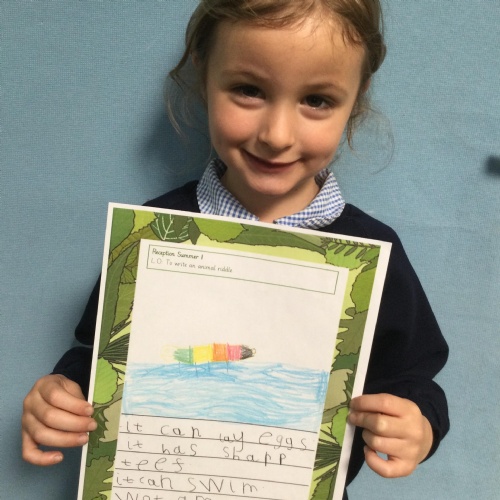 Reception Summer 1
L.O. To write an animal riddle
it can lay eggs
it has shapp
teef
it can swim